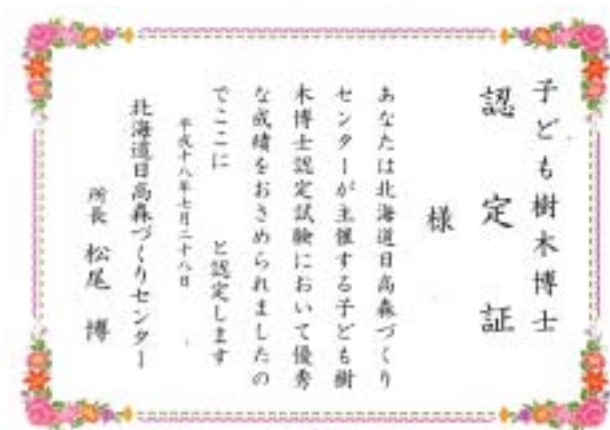 子ども樹木博士
認定証
様
あなたは北海道日高森づくり
センターが主催する子ども樹
木博士認定試験において優秀
な成績をおさめられましたの
でここに　　　と認定します
平成十八年七月二十八日
北海道日高森づくりセンター
所長　松尾　博